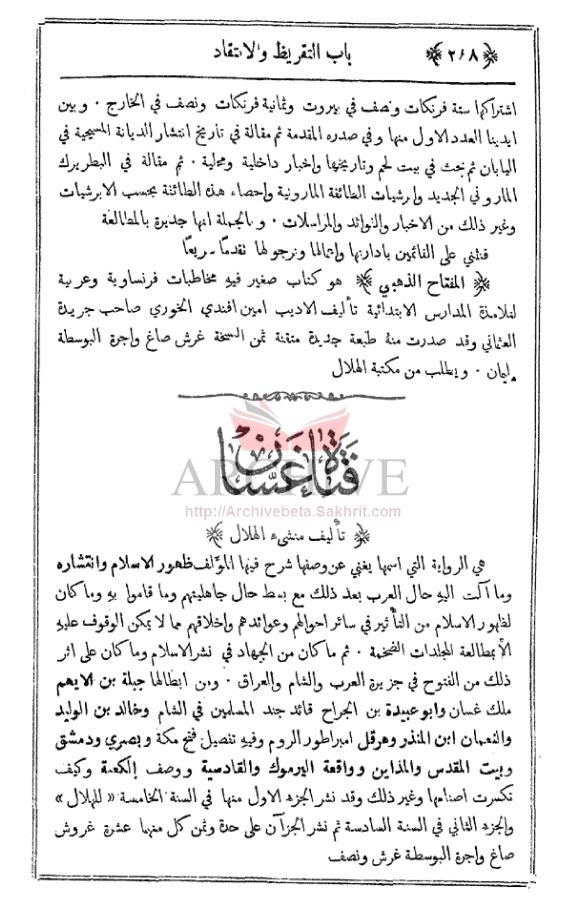 ﴿٢٠٨﴾ باب التقريظ والانتقاد
اشتراكها ستة فرنكات ونصف في بيروت وثمانية فرنكات ونصف في الخارج . وبين
ايدينا العدد الاول منها وفي صدره المقدمة ثم مقالة في تاريخ انتشار الديانة المسيحية في
اليابان ثم بحث في بيت لحم وتاريخها واخبار داخلية ومحلية . ثم مقالة في البطريرك
الماروني الجديد وابرشيات الطائفة المارونية واحصاء هذه الطائفة بحسب الابرشيات
وغير ذلك من الاخبار والفوائد والمراسلات . وبالجملة انها جديرة بالمطالعة
فنثني على القائمين بادارتها وامثالها ونرجو لها تقدمًا سريعًا
﴿ المفتاح الذهبي ﴾ هو كتاب صغير فيه مخاطبات فرنساوية وعربية
لتلامذة المدارس الابتدائية تأليف الاديب امين افندي الخوري صاحب جريدة
العثماني وقد صدرت منه طبعة جديدة متقنة ثمن النسخة غرش صاغ واجرة البوسطة
مليمان . ويطلب من مكتبة الهلال
فتاة غسان
ARCHIVE
http://Archivebeta.Sakhrit.com
﴿ تأليف منشىء الهلال ﴾
هي الرواية التي اسمها يغني عن وصفها شرح فيها المؤلف ظهور الاسلام وانتشاره
وما آلت اليه حال العرب بعد ذلك مع بسط حال جاهليتهم وما قاموا به وما كان
لظهور الاسلام من التأثير في سائر احوالهم وعوائدهم واخلاقهم مما لا يمكن الوقوف عليه
الا بمطالعة المجلدات الضخمة . ثم ما كان من الجهاد في نشر الاسلام وما كان على اثر
ذلك من الفتوح في جزيرة العرب والشام والعراق . ومن ابطالها جبلة بن الايهم
ملك غسان وابو عبيدة بن الجراح قائد جند المسلمين في الشام وخالد بن الوليد
والنعمان ابن المنذر وهرقل امبراطور الروم وفيه تفصيل فتح مكة وبصرى ودمشق
وبيت المقدس والمداين وواقعة اليرموك والقادسية ووصف الكعبة وكيف
تكسرت اصنامها وغير ذلك وقد نشر الجزء الاول منها في السنة الخامسة « للهلال »
والجزء الثاني في السنة السادسة ثم نشر الجزآن على حدة وثمن كل منهما عشرة غروش
صاغ واجرة البوسطة غرش ونصف